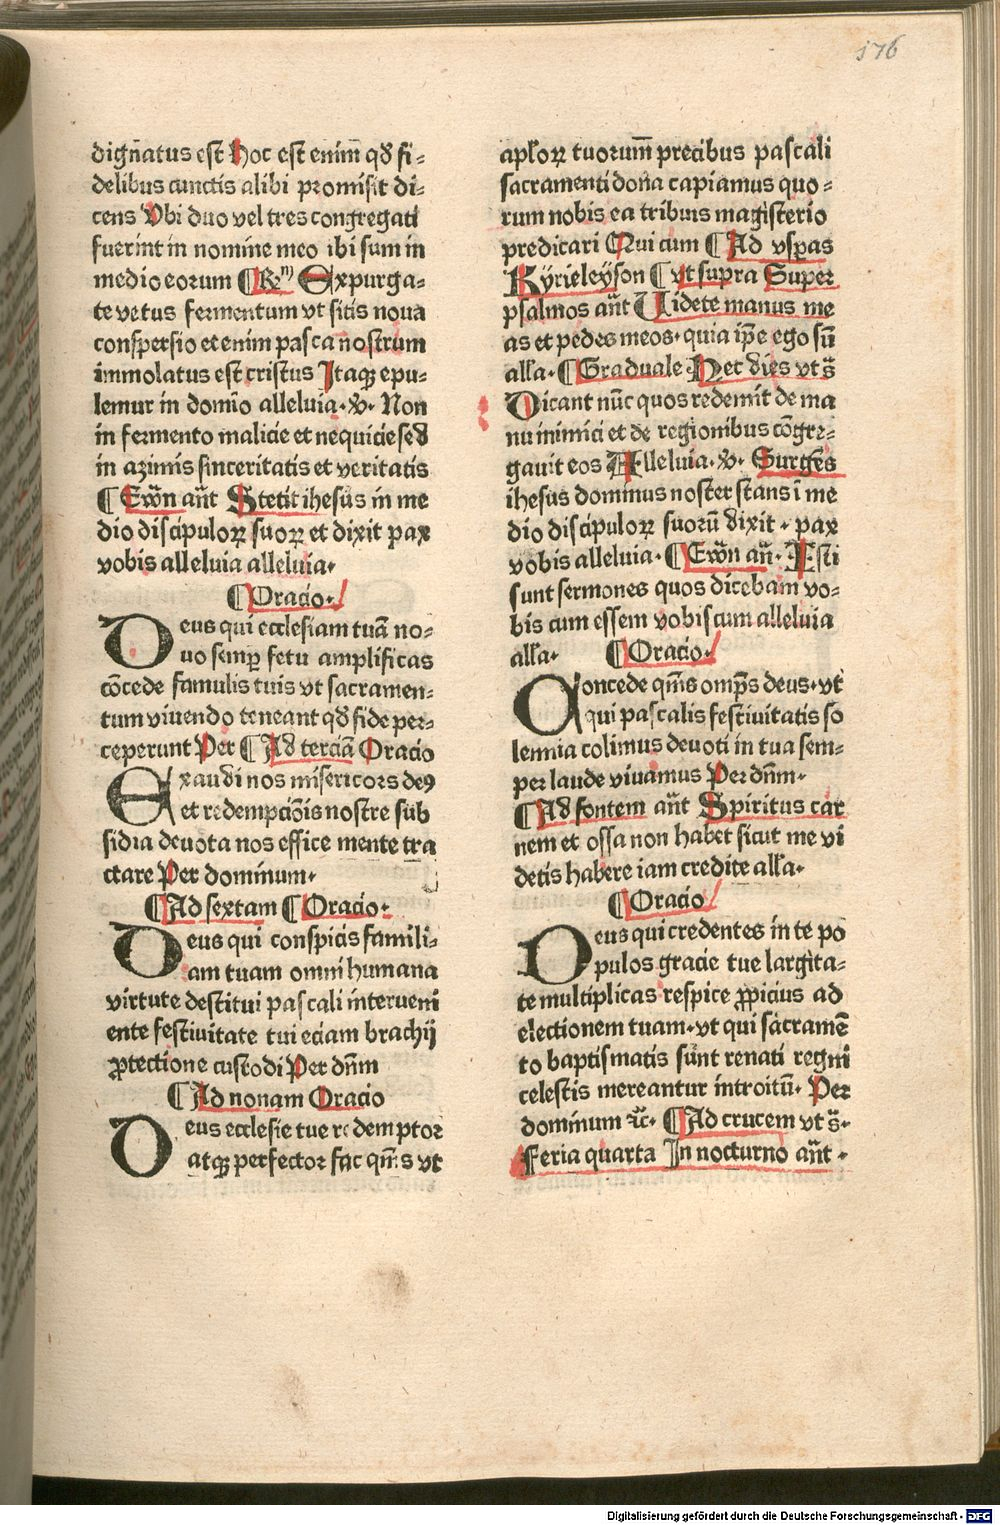 176
dign̄atus est Hoc est enim̄ qd̄ fi⸗
delibus cunctis alibi promisit di⸗
cens Vbi duo vel tres congregati
fuerint in nomine meo ibi sum in
medio eorum ¶ R⁊m̄ Expurga⸗
te vetus fermentum vt sitis noua
conspersio et enim pasca nostrum
immolatus est cristus Itaqꝫ epu⸗
lemur in domīo alleluia. ℣. Non
in fermento malicie et nequicie sed
in azimis sinceritatis et veritatis
¶ Ew̄n an̄t Stetit ihesus in me
dio discipuloꝝ suoꝝ et dixit pax
vobis alleluia alleluia.
¶ Oracio.
Deus qui ecclesiam tuā no⸗
uo semꝑ fetu amplificas
cōcede famulis tuis vt sacramen⸗
tum viuendo teneant qd̄ fide per⸗
ceperunt Per ¶ Ad terciā Oracio
Exaudi nos misericors deꝰ
et redempciōis nostre sub
sidia deuota nos effice mente tra
ctare Per dominum.
¶ Ad sextam ¶ Oracio.
Deus qui conspicis famili⸗
am tuam omni humana
virtute destitui pascali interueni
ente festiuitate tui eciam brachij
ꝓtectione custodi Per dn̄m
¶ Ad nonam Oracio
Deus ecclesie tue redemptor
atqꝫ perfector fac qm̄s vt
apl̄oꝝ tuorum̄ precibus pascali
sacramenti dona capiamus quo⸗
rum nobis ea tribuis magisterio
predicari Qui cum ¶ Ad vsp̄as
Kyrieleyson ¶ vt supra Super
psalmos an̄t Uidete manus me
as et pedes meos. quia ip̄e ego sū
alla. ¶ Graduale. Hec dies vt s̄
Dicant nūc quos redemit de ma
nu inimici et de regionibus cōgre⸗
gauit eos Alleluia. ℣. Surgēs
ihesus dominus noster stans ī me
dio discipuloꝝ suorū dixit. pax
vobis alleluia. ¶ Ew̄n an̄. Isti
sunt sermones quos dicebam vo⸗
bis cum essem vobiscum alleluia
alla. ¶ Oracio.
Concede qm̄s omp̄s deus. vt
qui pascalis festiuitatis so
lennia colimus deuoti in tua sem⸗
per laude viuamus Per dn̄m.
¶ Ad fontem an̄t Spiritus car
nem et ossa non habet sicut me vi
detis habere iam credite alla.
¶ Oracio
Deus qui credentes in te po
pulos gracie tue largita⸗
te multiplicas respice ꝓpicius ad
electionem tuam. vt qui sacramē
to baptismatis sunt renati regni
celestis mereantur introitū. Per
dominum ⁊c̄. ¶ Ad crucem vt s̄.
Feria quarta In nocturno an̄t.
Digitalisierung gefördert durch die Deutsche Forschungsgemeinschaft - DFG